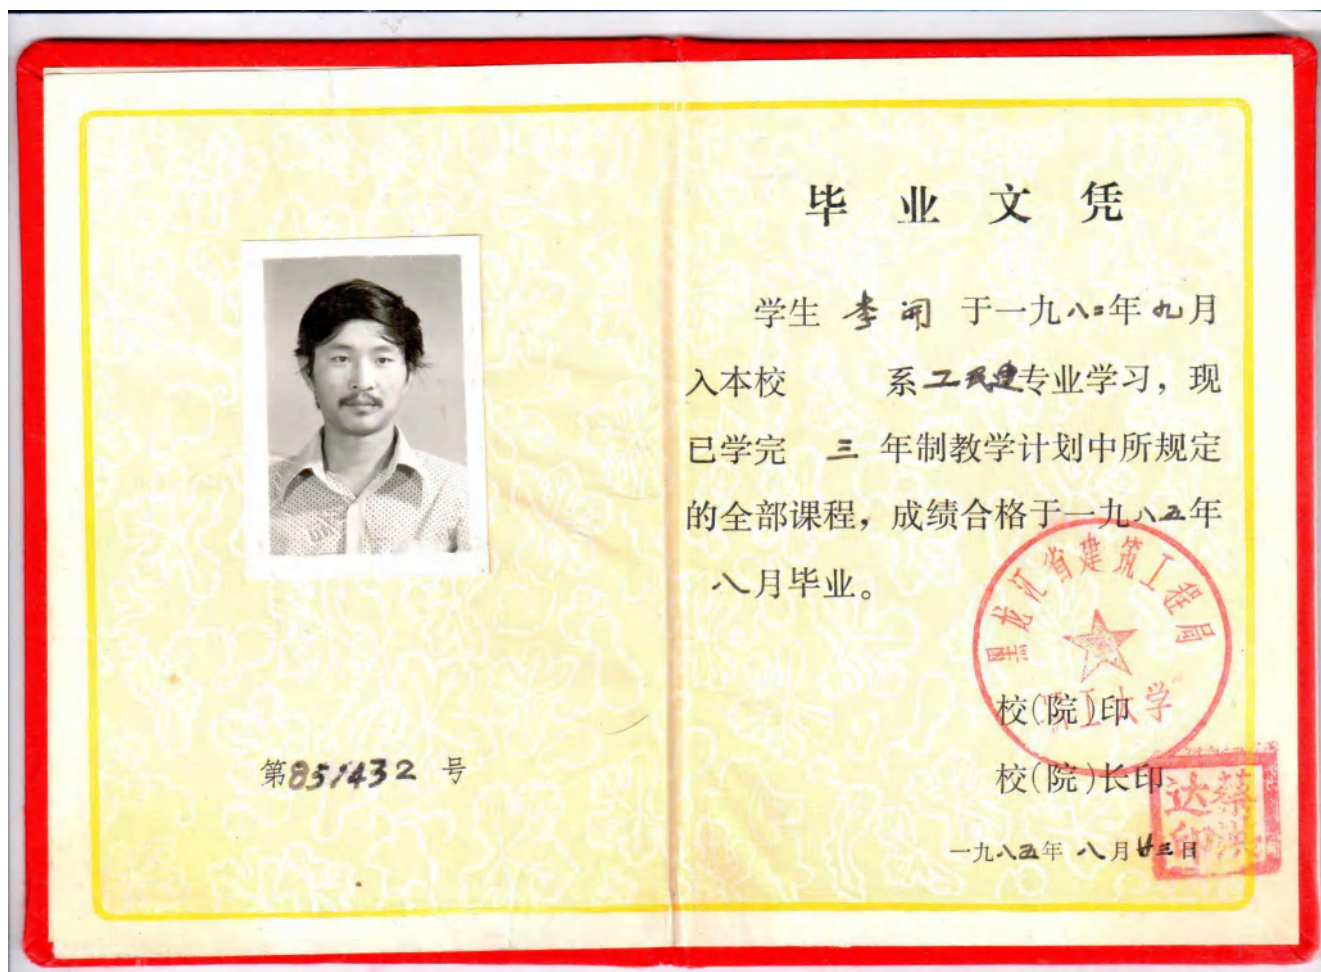 毕业文凭
学生 李 于一九八二年九月
入本校 系工民建专业学习，现
已学完 三 年制教学计划中所规定
的全部课程，成绩合格于一九八五年
八月毕业。
黑龙江省建筑工程局
职工大学
校(院)印
校(院)长印
蔡洪
达印
一九八五年八月廿三日
第851432号